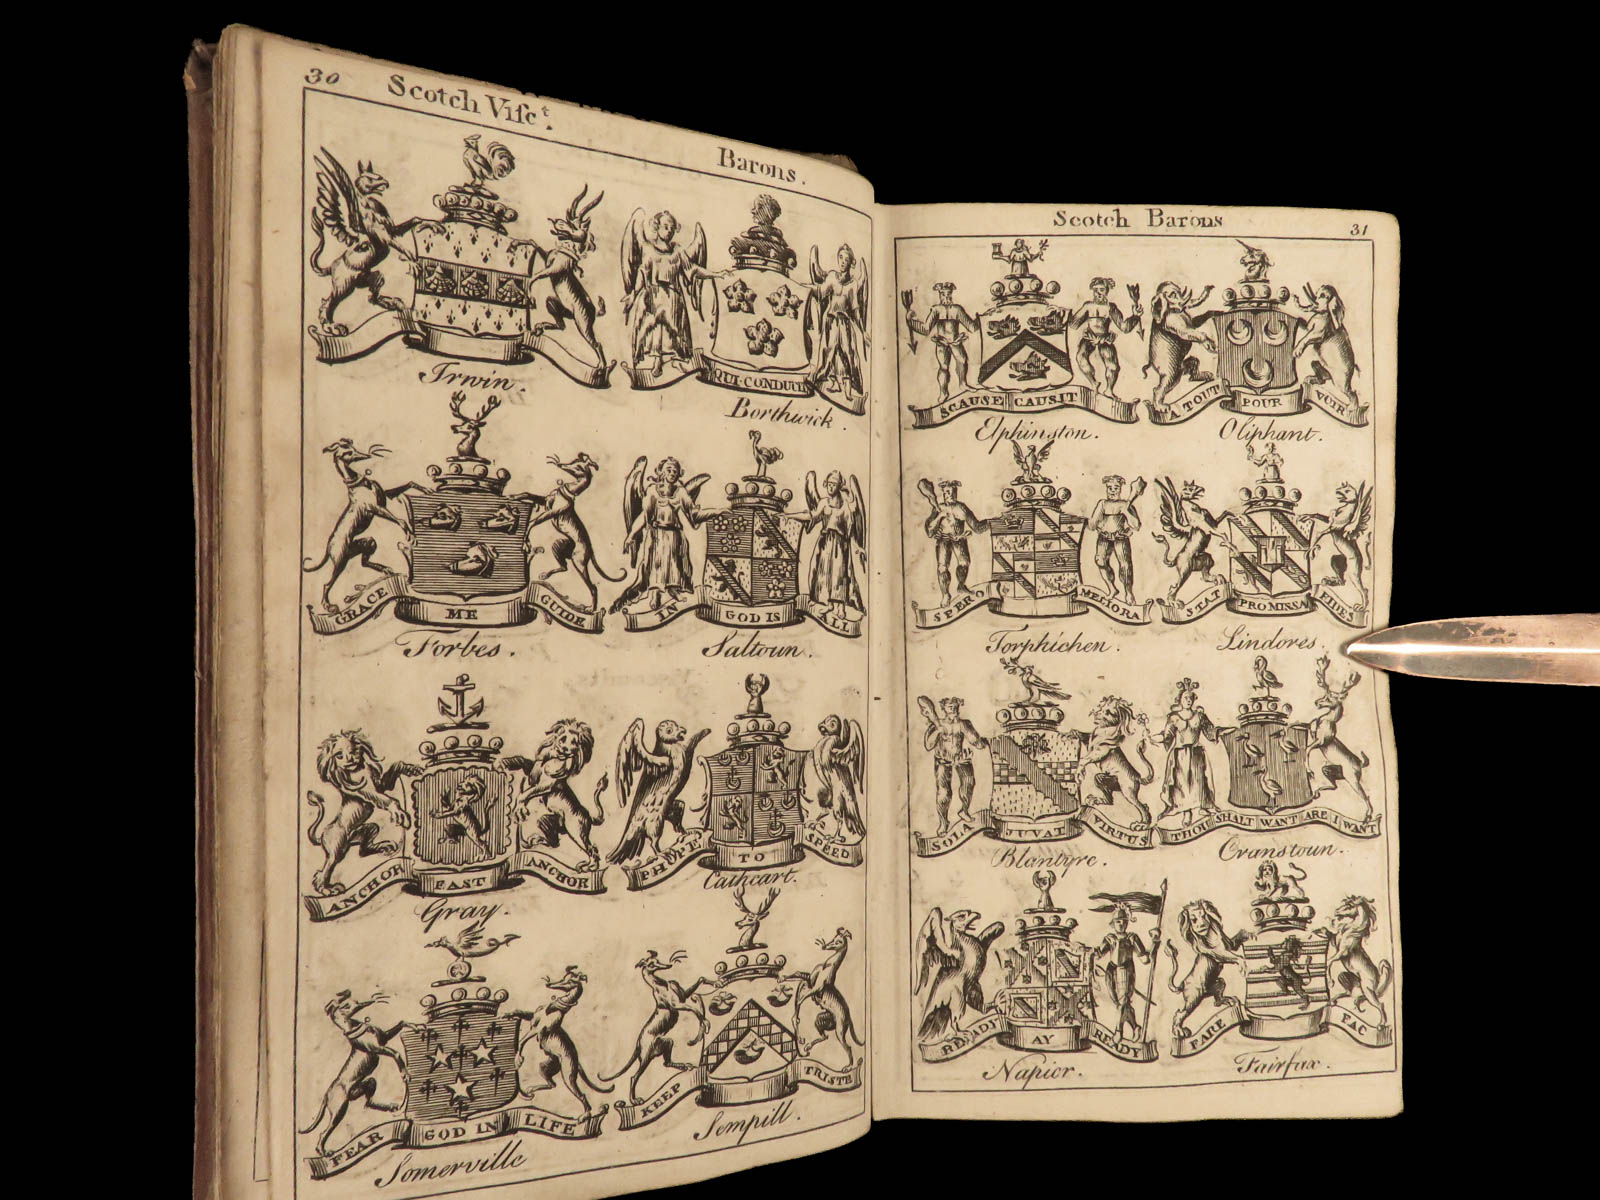 30 Scotch Viſc.t Barons.
Irwin.
QUI CONDUCIT
Borthwick.
GRACE ME GUIDE
Forbes.
IN GOD IS ALL
Saltoun.
ANCHOR FAST ANCHOR
Gray.
I HOPE TO SPEED
Cathcart.
FEAR GOD IN LIFE
Somerville
KEEP TRISTE
Sempill.
Scotch Barons 31
CAUSE CAUSIT
Elphinston.
A TOUT POUR VOIR
Oliphant.
SPERO MELIORA
Torphichen.
STAT PROMISSA FIDES
Lindores.
SOLA JUVAT VIRTUS
Blantyre.
THOU SHALT WANT ARE I WANT
Cranstoun.
READY AY READY
Napier.
FARE FAC
Fairfax.